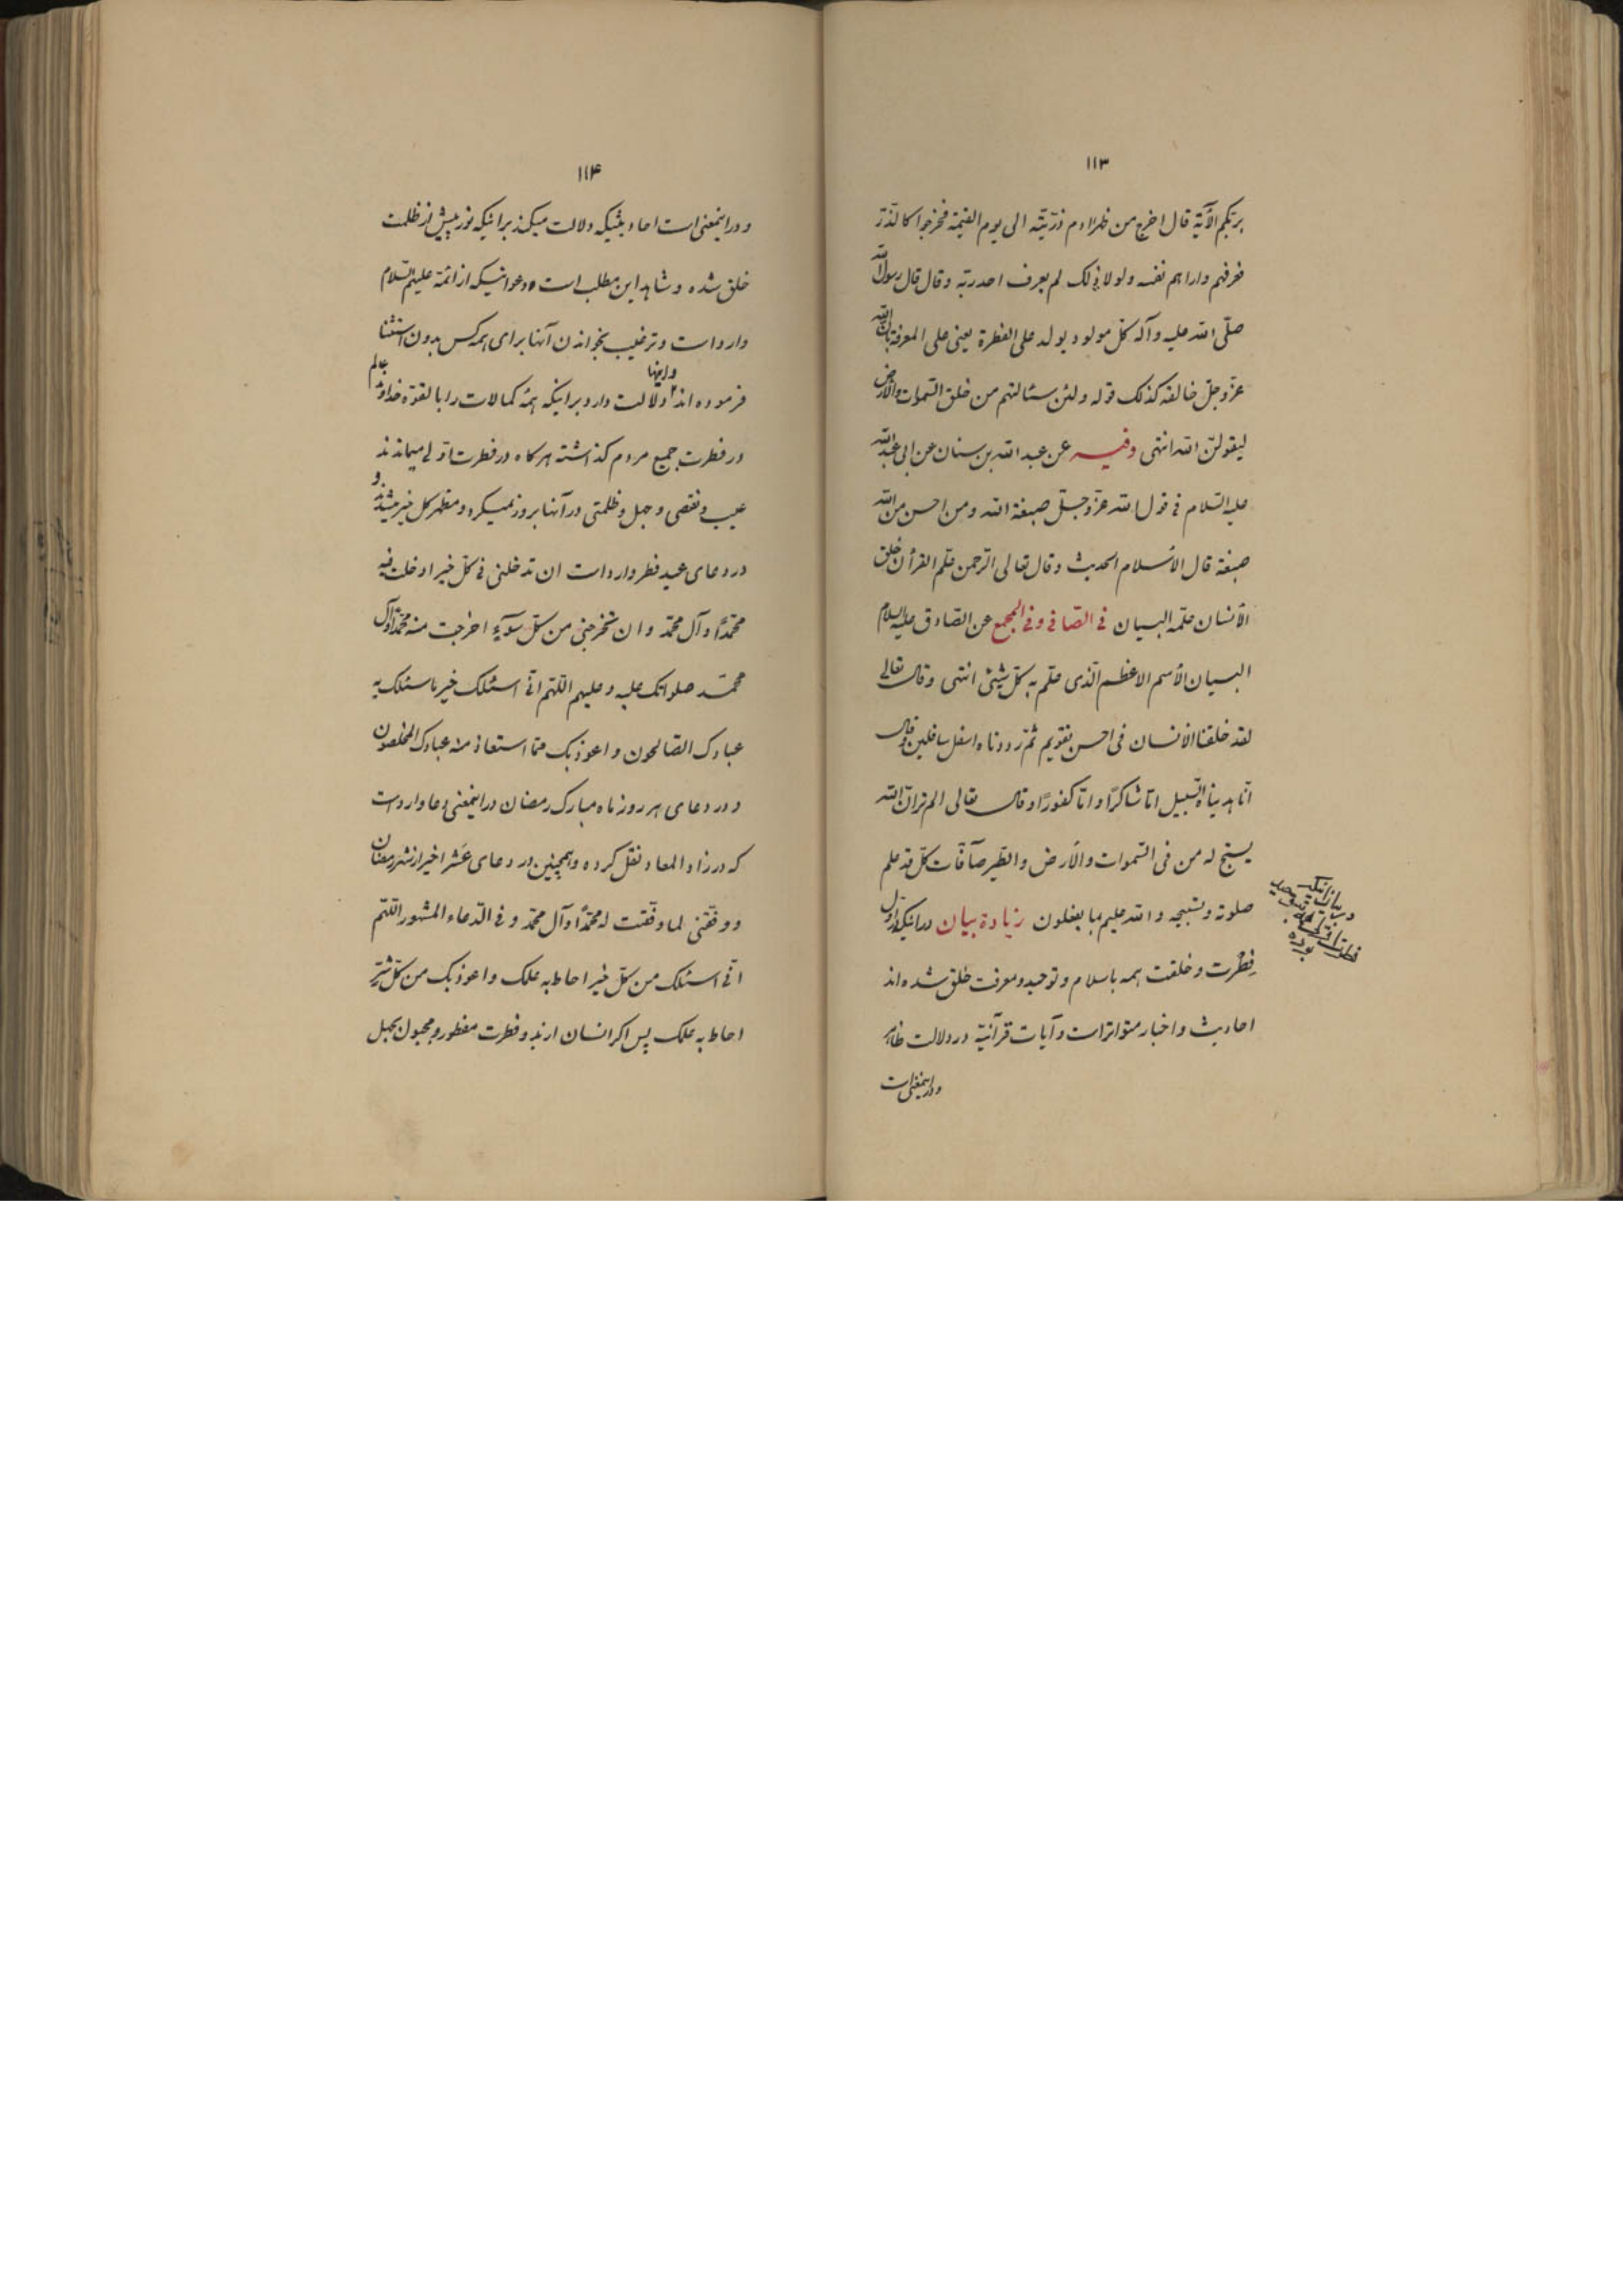 ۱۱۳
بربکم الآیة قال اخرج من ظهر ادم ذرّیّته الی یوم القیمة فخرجوا کالذّر
فعرفهم واراهم نفسه ولولا ذلک لم یعرف احد ربّه وقال قال رسول الله
صلّی الله علیه وآله کلّ مولود یولد علی الفطرة یعنی علی المعرفة بانّ الله
عزّوجلّ خالقه کذلک قوله ولئن سئالتهم من خلق السّموات والارض
لیقولنّ الله انتهی وفیـه عن عبدالله بن سنان عن ابی عبدالله
علیه السّلام فی قول الله عزّوجلّ صبغة الله ومن احسن من الله
صبغة قال الأسلام الحدیث وقال تعالی الرّحمن علّم القرأن خلق
الأنسان علّمه البیـان فی الصّافی وفی المجمع عن الصّادق علیه السلام
البیـان الأسم الاعظم الّذی علّم به کلّ شیئی انتهی وقال تعالی
لقد خلقنا الأنسان فی احسن تقویم ثمّ رددناه اسفل سافلین وقال
انّا هدیناه السّبیل امّا شاکرًا و امّا کفورًا وقال تعالی الم تر انّ الله
یسبّح له من فی السّموات والارض والطّیر صآفّات کلّ قد علم
صلوته وتسبیحه والله علیم بما یفعلون زیادة بیان در اینکه در اوّل
فِطرت و خلقت همه باسلام و توحید و معرفت خلق شده اند
احادیث و اخبار متواتر است و آیات قرآنیّه در دلالت ظاهر
و در اینمعنی است
در بیان اینکه
بوده
۱۱۴
و در اینمعنی است احادیثیکه دلالت میکند بر اینکه نور پیش از ظلمت
خلق شده و شاهد این مطلب است دعواتیکه از ائمّة علیهم السّلام
وارد است و ترغیب بخواندن آنها برای همه کس بدون استثنا
فرموده اند و اینها دلالت دارد بر اینکه همهٔ کمالات را بالقوّه خداوند عالم
در فطرت جمیع مردم گذاشته هرگاه در فطرت اوّلی میماندند
عیب و نقصی و جهل و ظلمتی در آنها بروز نمیکرد و مظهر کل خیر میشدند و
در دعای عید فطر وارد است ان تدخلنی فی کلّ خیر ادخلت فیه
محمّدًا و آل محمّد و ان تخرجنی من کلّ سوّءٍ اخرجت منه محمّدًا و آل
محمّـد صلواتک علیه و علیهم اللّهمّ انّی اسئلک خیر ما سئلک به
عبادک الصّالحون و اعوذ بک ممّا استعاذ منه عبادک المخلصون
و در دعای هر روز ماه مبارک رمضان در اینمعنی دعا وارد است
که در زاد المعاد نقل کرده و همچنین در دعای عَشر اخیر از شهر رمضان
و وفّقنی لما وفّقت له محمّدًا و آل محمّد و فی الدّعاء المشهور اللّهمّ
انّی اسئلک من کلّ خیر احاط به علمک و اعوذ بک من کلّ شرّ
احاط به علمک پس اگر انسان از بدو فطرت مفطور و مجبول بجهل